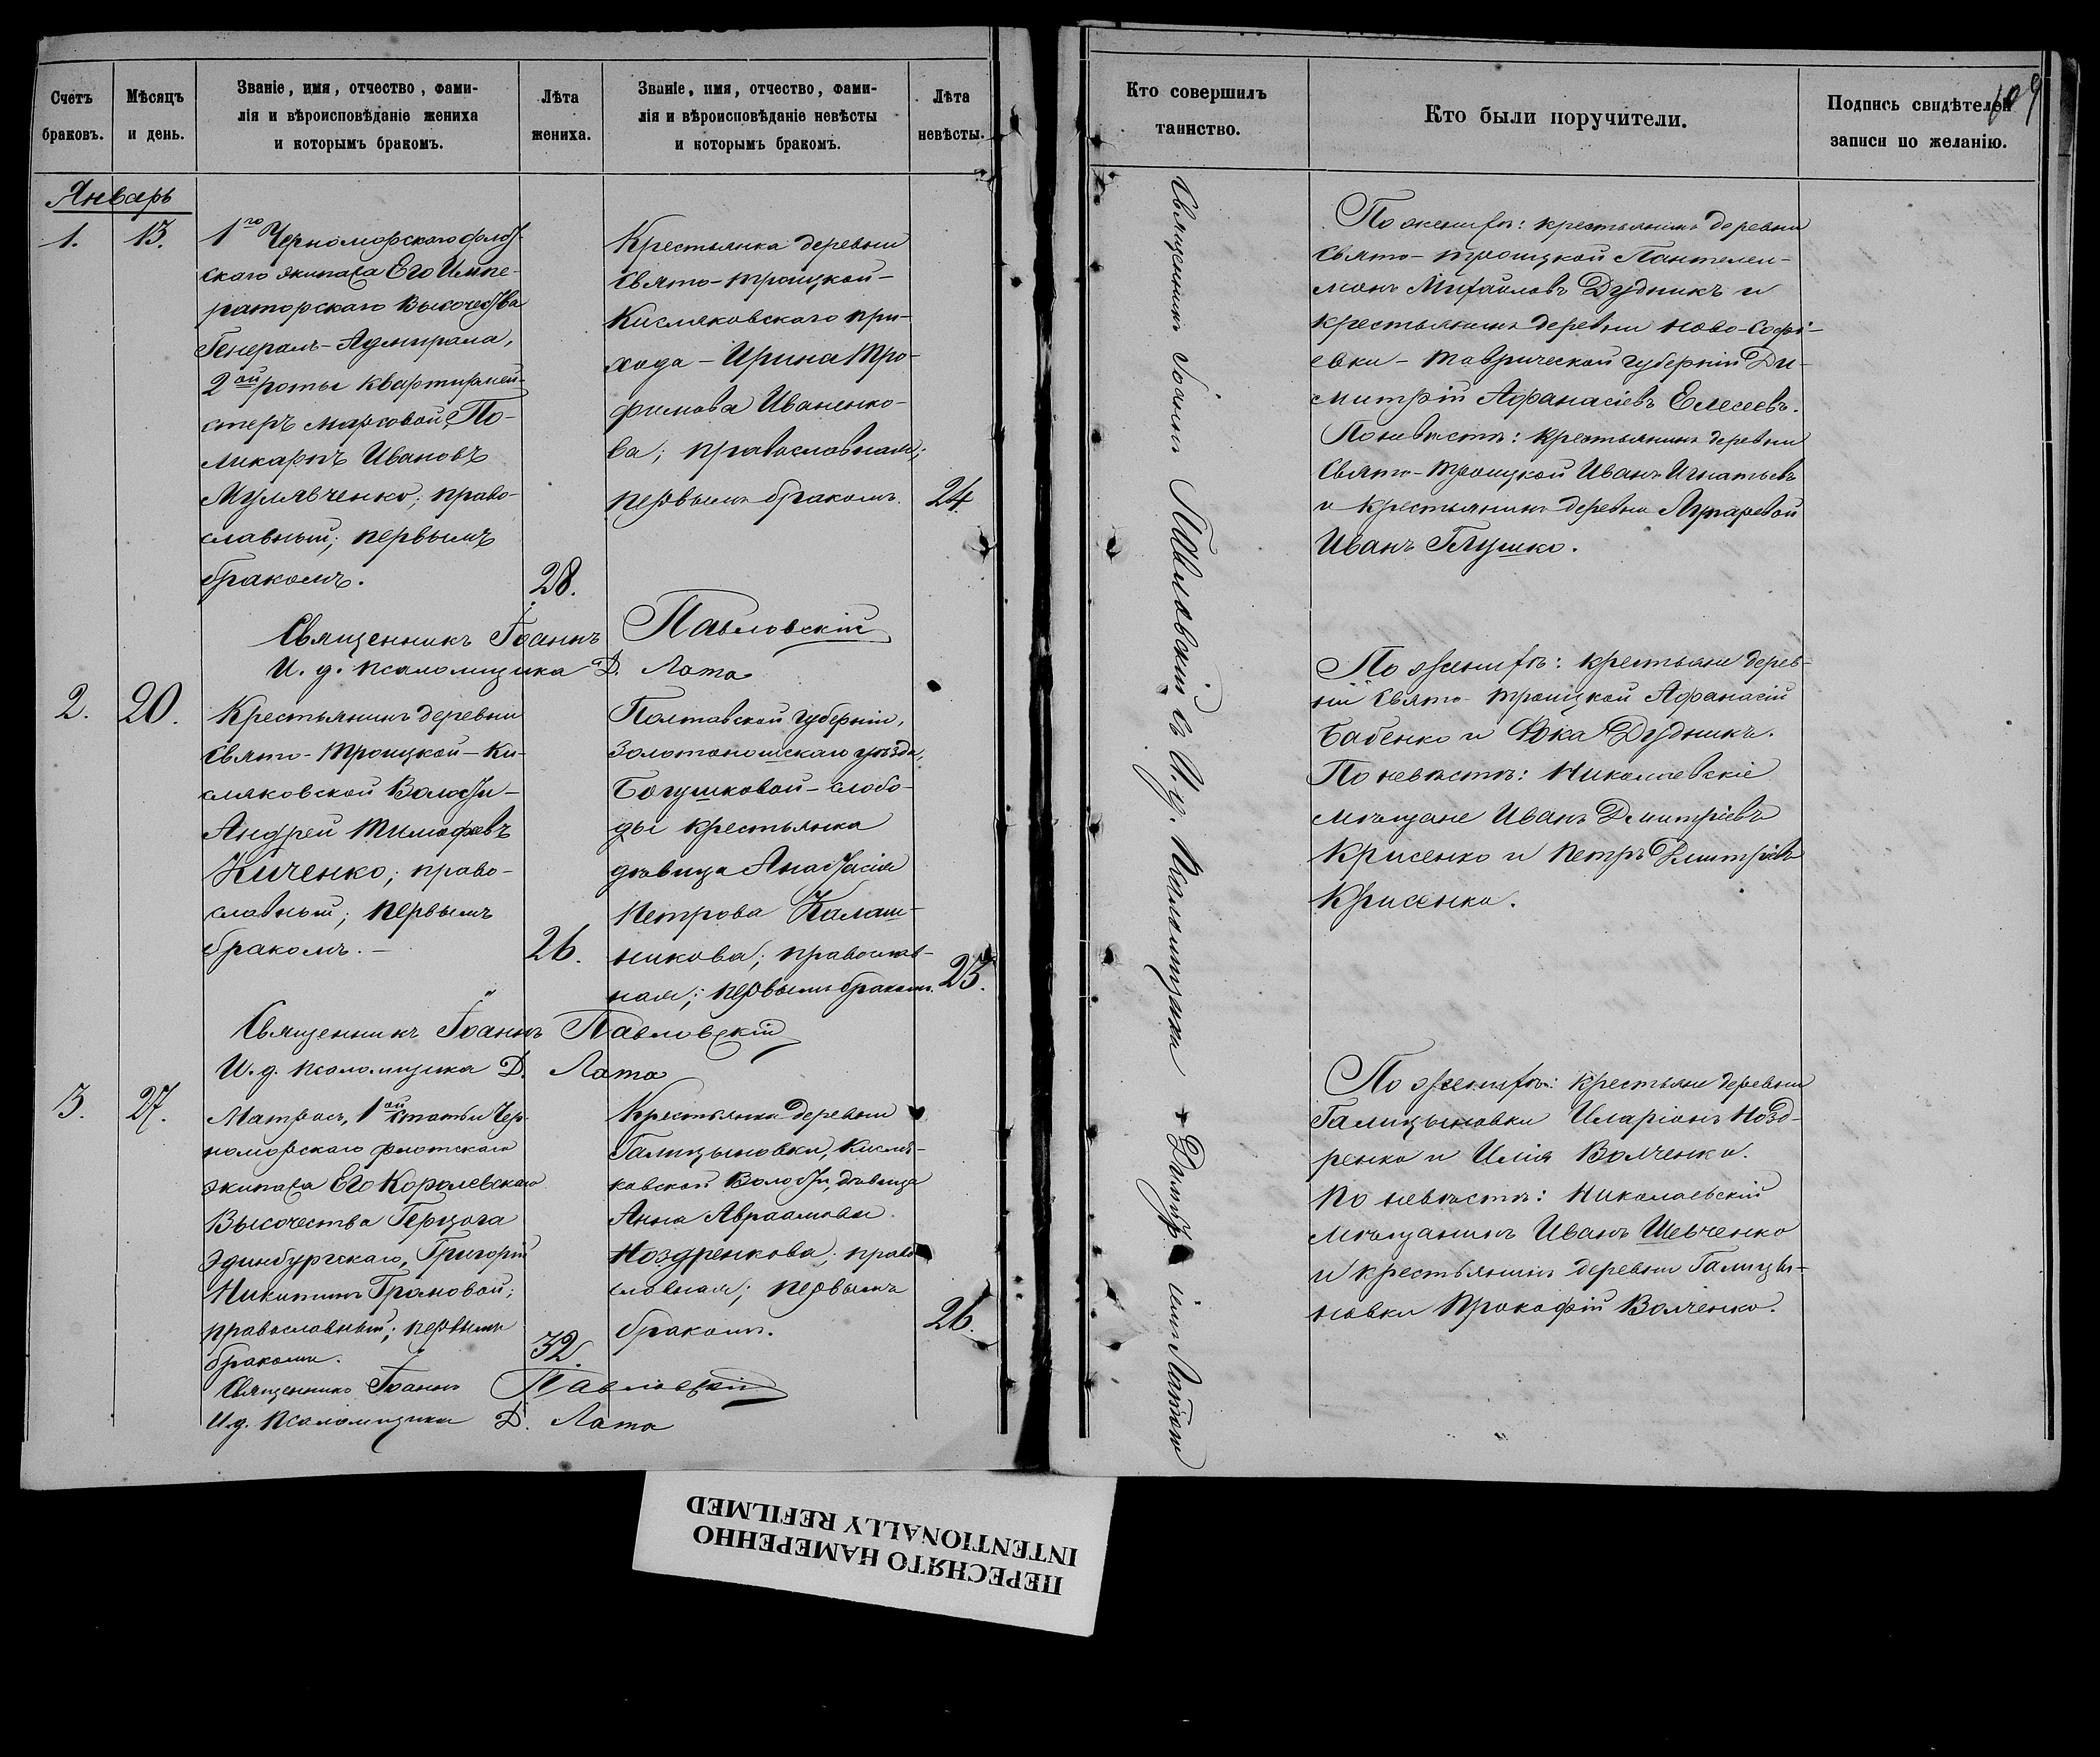 Счетъ браковъ.
Мѣсяцъ и день.
Званіе, имя, отчество, фами-
лія и вѣроисповѣданіе жениха
и которымъ бракомъ.
Лѣта жениха.
Званіе, имя, отчество, фами-
лія и вѣроисповѣданіе невѣсты
и которымъ бракомъ.
Лѣта невѣсты.
Январь
1.
13.
1го Черноморского флот-
скаго экипажа Его Импе-
раторскаго Высочества
Генералъ-Адмирала,
2ой роты квартирмей-
стеръ марсовой, По-
ликарпъ Ивановъ
Мулявченко; право-
славный; первымъ
бракомъ.
28.
Крестьянка деревни
Свято-Троицкой-
Кисляковскаго при-
хода - Ирина Тро-
фимова Иваненко-
ва; православная;
первымъ бракомъ.
24.
Священникъ Іоаннъ Павловскій
И. д. псаломщика Д. Лата
2.
20.
Крестьянинъ деревни
Свято-Троицкой-Ки-
сляковской Волости-
Андрей Тимофѣевъ
Киченко; право-
славный; первымъ
бракомъ. -
26.
Полтавской губерніи,
Золотоношскаго уѣзда,
Богушковой-слобо-
ды крестьянка
дѣвица Анастасія
Петрова Калаш-
никова; православ-
ная; первымъ бракомъ.
23.
Священникъ Іоаннъ Павловскій
И. д. псаломщика Д. Лата
3.
27.
Матросъ, 1ой статьи Чер-
номорскаго флотскаго
экипажа Его Королевскаго
Высочества Герцога
Эдинбургскаго, Григорій
Никитинъ Громовой;
православный; первымъ
бракомъ.
32.
Крестьянка деревни
Галицыновки, Кисля-
ковской Волости, дѣвица
Анна Авраамова
Ноздренкова; право
славная; первымъ
бракомъ.
26.
Священникъ Іоаннъ Павловскій
И. д. псаломщика Д. Лата
Кто совершилъ
таинство.
Кто были поручители.
Подпись свидѣтелей
записи по желанію.
109
Священникъ Іоаннъ Павловскій съ И. д. Псаломщика Латою
По женихѣ: крестьянинъ деревни
Свято-Троицкой Пантелей-
монъ Михайловъ Дудникъ и
крестьянинъ деревни Ново-Софі-
евки - Таврической губерніи Ди-
митрій Афанасіевъ Елесеевъ.
По невѣстѣ: крестьянинъ деревни
Свято-Троицкой Иванъ Игнатьевъ
и крестьянинъ деревни Лупаревой
Иванъ Глушко.
По женихѣ: крестьяне дерев-
ни Свято-Троицкой Афанасій
Бабенко и Фока Дудникъ.
По невѣстѣ: Николаевскіе
мѣщане Иванъ Дмитріевъ
Крисенко и Петръ Дмитріевъ
Крисенко.
По женихѣ: крестьяне деревни
Галицыновки Иларіонъ Нозд-
ренко и Илія Волченко.
По невѣстѣ: Николаевскій
мѣщанинъ Иванъ Шевченко
и крестьянинъ деревни Галицы-
новки Прокофій Волченко.
ПЕРЕСНЯТО НАМЕРЕННО
INTENTIONALLY REFILMED